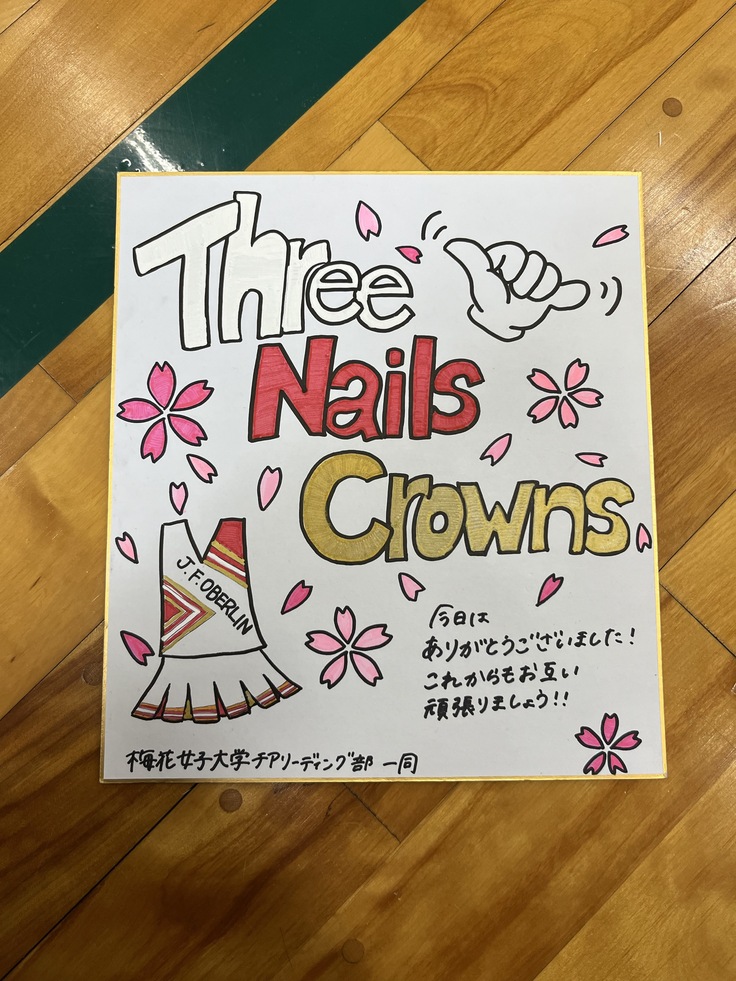 Three
Nails
Crowns
J.F.OBERLIN
今日は
ありがとうございました!
これからもお互い
頑張りましょう!!
梅花女子大学チアリーディング部 一同